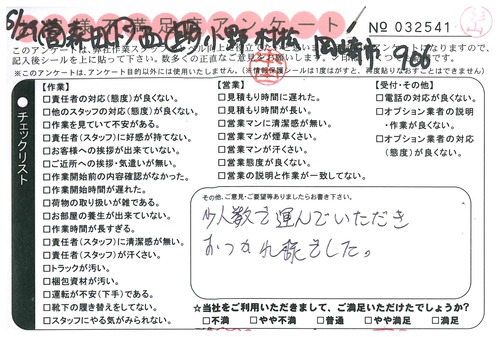 お客様不満足度アンケート
№ 032541
記入後シールを上に貼って下さい。
(※このアンケートは、アンケート目的以外には使用いたしません。)
(※情報保護シールは1度はがすと、再度貼りなおすことはできません)
チェックリスト
【作業】
□責任者の対応(態度)が良くない。
□他のスタッフの対応(態度)が良くない。
□作業を見ていて不安がある。
□責任者(スタッフ)に好感が持てない。
□お客様への挨拶が出来ていない。
□ご近所への挨拶・気遣いが無い。
□作業開始前の内容確認がなかった。
□作業開始時間が遅れた。
□荷物の取り扱いが雑である。
□お部屋の養生が出来ていない。
□作業時間が長すぎる。
□責任者(スタッフ)に清潔感が無い。
□責任者(スタッフ)が汗くさい。
□トラックが汚い。
□梱包資材が汚い。
□運転が不安(下手)である。
□靴下の履き替えをしてない。
□スタッフにやる気がみられない。
【営業】
□見積もり時間に遅れた。
□見積もり時間が長い。
□営業マンに清潔感が無い。
□営業マンが煙草くさい。
□営業マンが汗くさい。
□営業態度が良くない。
□営業の説明と作業が一致してない。
【受付・その他】
□電話の対応が良くない。
□オプション業者の説明・作業が良くない。
□オプション業者の対応(態度)が良くない。
その他、ご意見・ご要望等ありましたらお書き下さい。
少人数で運んでいただき
おつかれ様でした。
☆当社をご利用いただきまして、ご満足いただけたでしょうか?
□不満 □やや不満 □普通 □やや満足 □満足